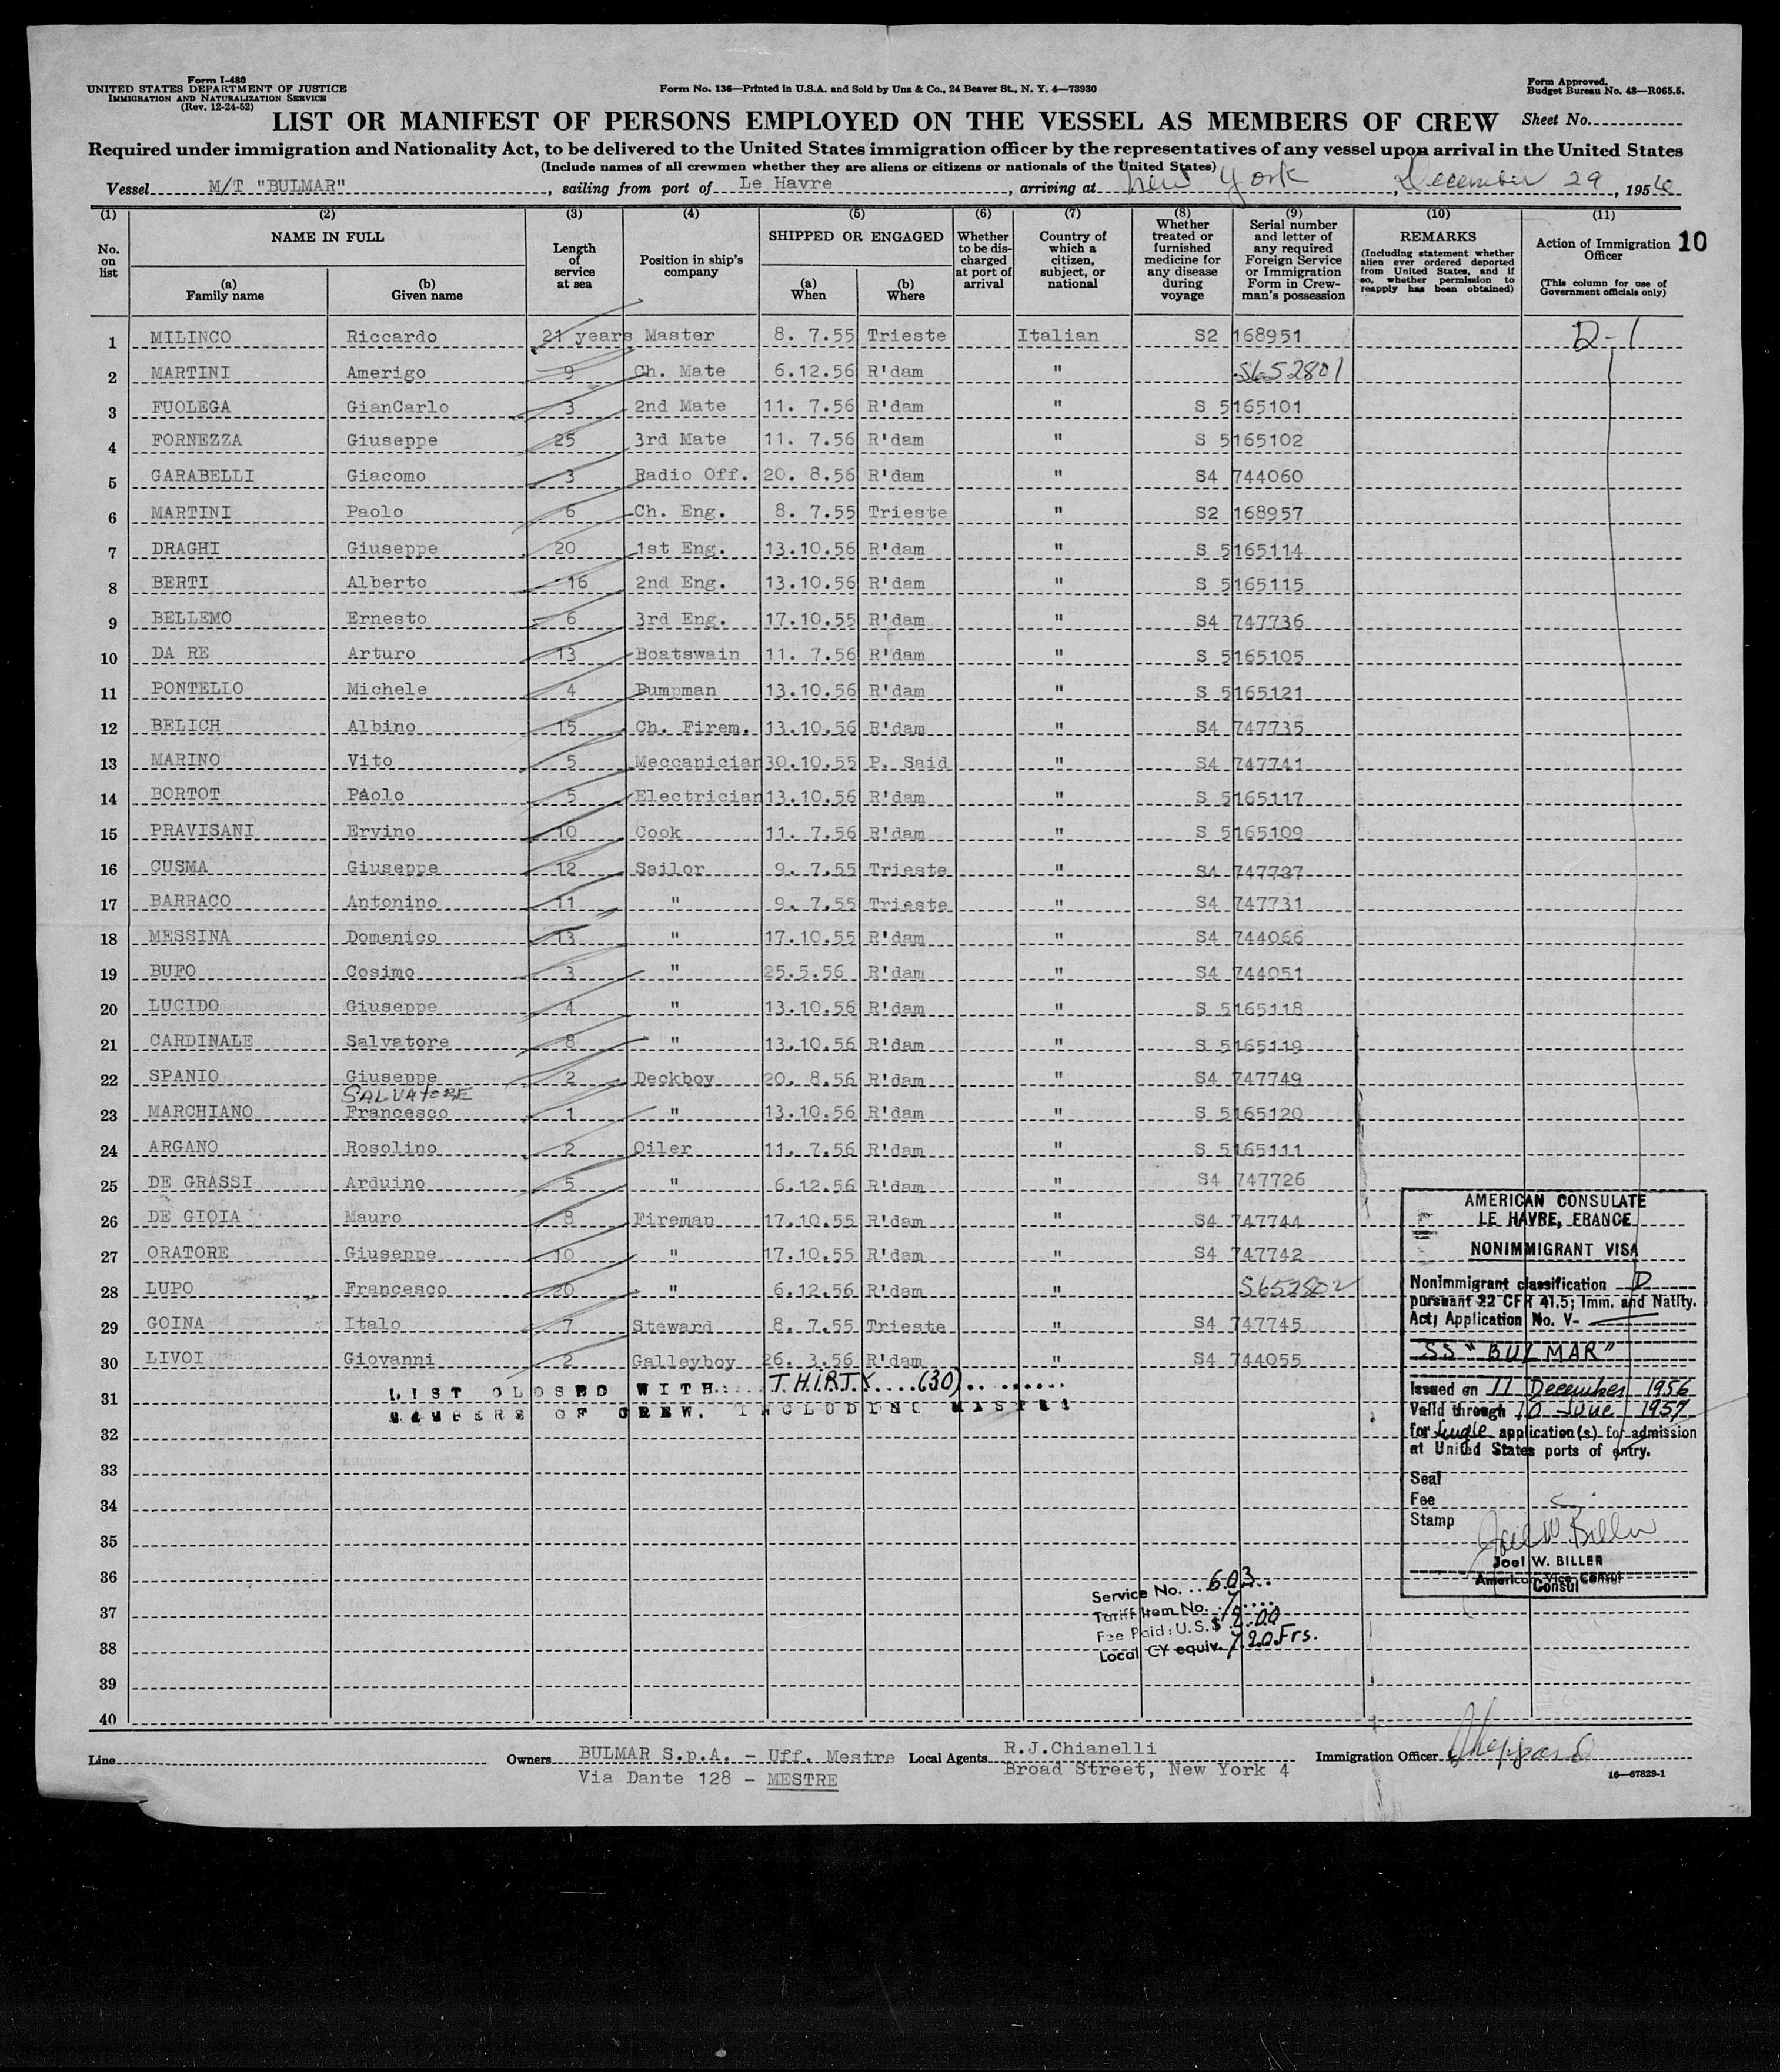 Form I-480
UNITED STATES DEPARTMENT OF JUSTICE
IMMIGRATION AND NATURALIZATION SERVICE
(Rev. 12-24-52)
Form No. 136—Printed in U.S.A. and Sold by Unz & Co., 24 Beaver St., N. Y. 4—73930
Form Approved.
Budget Bureau No. 43—R065.5.
LIST OR MANIFEST OF PERSONS EMPLOYED ON THE VESSEL AS MEMBERS OF CREW Sheet No.
Required under immigration and Nationality Act, to be delivered to the United States immigration officer by the representatives of any vessel upon arrival in the United States
(Include names of all crewmen whether they are aliens or citizens or nationals of the United States)
Vessel M/T "BULMAR", sailing from port of Le Havre, arriving at New York, December 29, 1956
(1) (2) (3) (4) (5) (6) (7) (8) (9) (10) (11)
No. on list | NAME IN FULL (a) Family name (b) Given name | Length of service at sea | Position in ship's company | SHIPPED OR ENGAGED (a) When (b) Where | Whether to be discharged at port of arrival | Country of which a citizen, subject, or national | Whether treated or furnished medicine for any disease during voyage | Serial number and letter of any required Foreign Service or Immigration Form in Crewman's possession | REMARKS (Including statement whether alien ever ordered deported from United States, and if so, whether permission to reapply has been obtained) | Action of Immigration Officer (This column for use of Government officials only) 10
1 MILINCO Riccardo 21 years Master 8. 7.55 Trieste Italian S2 168951 D-1
2 MARTINI Amerigo 9 Ch. Mate 6.12.56 R'dam " S652801
3 FUOLEGA GianCarlo 3 2nd Mate 11. 7.56 R'dam " S 5165101
4 FORNEZZA Giuseppe 25 3rd Mate 11. 7.56 R'dam " S 5165102
5 GARABELLI Giacomo 3 Radio Off. 20. 8.56 R'dam " S4 744060
6 MARTINI Paolo 6 Ch. Eng. 8. 7.55 Trieste " S2 168957
7 DRAGHI Giuseppe 20 1st Eng. 13.10.56 R'dam " S 5165114
8 BERTI Alberto 16 2nd Eng. 13.10.56 R'dam " S 5165115
9 BELLEMO Ernesto 6 3rd Eng. 17.10.55 R'dam " S4 747736
10 DA RE Arturo 13 Boatswain 11. 7.56 R'dam " S 5165105
11 PONTELLO Michele 4 Pumpman 13.10.56 R'dam " S 5165121
12 BELICH Albino 15 Ch. Firem. 13.10.56 R'dam " S4 747735
13 MARINO Vito 5 Meccanician 30.10.55 P. Said " S4 747741
14 BORTOT Paolo 5 Electrician 13.10.56 R'dam " S 5165117
15 PRAVISANI Ervino 10 Cook 11. 7.56 R'dam " S 5165109
16 CUSMA Giuseppe 12 Sailor 9. 7.55 Trieste " S4 747727
17 BARRACO Antonino 11 " 9. 7.55 Trieste " S4 747731
18 MESSINA Domenico 13 " 17.10.55 R'dam " S4 744066
19 BUFO Cosimo 3 " 25.5.56 R'dam " S4 744051
20 LUCIDO Giuseppe 4 " 13.10.56 R'dam " S 5165118
21 CARDINALE Salvatore 8 " 13.10.56 R'dam " S 5165119
22 SPANIO Giuseppe 2 Deckboy 20. 8.56 R'dam " S4 747749
SALVATORE
23 MARCHIANO Francesco 1 " 13.10.56 R'dam " S 5165120
24 ARGANO Rosolino 2 Oiler 11. 7.56 R'dam " S 5165111
25 DE GRASSI Arduino 5 " 6.12.56 R'dam " S4 747726
26 DE GIOIA Mauro 8 Fireman 17.10.55 R'dam " S4 747744
27 ORATORE Giuseppe 10 " 17.10.55 R'dam " S4 747742
28 LUPO Francesco 20 " 6.12.56 R'dam " S652802
29 GOINA Italo 7 Steward 8. 7.55 Trieste " S4 747745
30 LIVOI Giovanni 2 Galleyboy 26. 3.56 R'dam " S4 744055
31 LIST CLOSED WITH: THIRTY (30)
MEMBERS OF CREW. INCLUDING MASTER
32
33
34
35
36
37
38
39
40
AMERICAN CONSULATE
LE HAVRE, FRANCE
NONIMMIGRANT VISA
Nonimmigrant classification D
pursuant 22 CFR 41.5; Imm. and Natlty.
Act; Application No. V-
SS "BULMAR"
Issued on 11 December 1956
Valid through 10 June 1957
for single application(s) for admission
at United States ports of entry.
Seal
Fee
Stamp
Joel W. Biller
Joel W. BILLER
American Vice Consul
Consul
Service No. 603
Tariff Item No. 1
Fee Paid: U.S.$ 2.00
Local CY equiv. 720 Frs.
Line Owners BULMAR S.p.A. - Uff. Mestre Local Agents R.J.Chianelli Immigration Officer
Via Dante 128 - MESTRE Broad Street, New York 4
16—67829-1